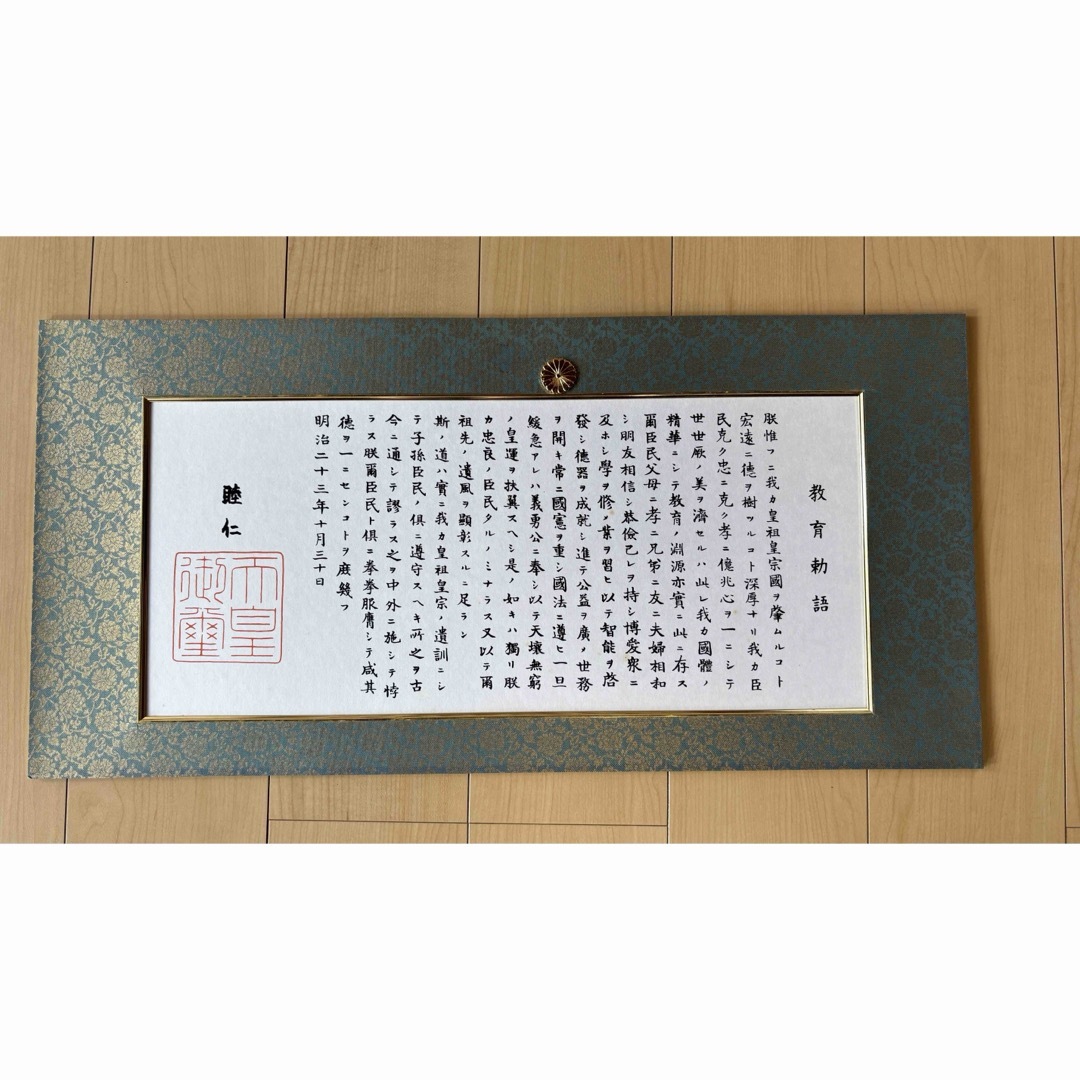 教育勅語
朕惟フニ我カ皇祖皇宗國ヲ肇ムルコト
宏遠ニ德ヲ樹ツルコト深厚ナリ我カ臣
民克ク忠ニ克ク孝ニ億兆心ヲ一ニシテ
世世厥ノ美ヲ濟セルハ此レ我カ國體ノ
精華ニシテ教育ノ淵源亦實ニ此ニ存ス
爾臣民父母ニ孝ニ兄弟ニ友ニ夫婦相和
シ朋友相信シ恭儉己レヲ持シ博愛衆ニ
及ホシ學ヲ修メ業ヲ習ヒ以テ智能ヲ啓
發シ德器ヲ成就シ進テ公益ヲ廣メ世務
ヲ開キ常ニ國憲ヲ重シ國法ニ遵ヒ一旦
緩急アレハ義勇公ニ奉シ以テ天壤無窮
ノ皇運ヲ扶翼スヘシ是ノ如キハ獨リ朕
カ忠良ノ臣民タルノミナラス又以テ爾
祖先ノ遺風ヲ顯彰スルニ足ラン
斯ノ道ハ實ニ我カ皇祖皇宗ノ遺訓ニシ
テ子孫臣民ノ俱ニ遵守スヘキ所之ヲ古
今ニ通シテ謬ラス之ヲ中外ニ施シテ悖
ラス朕爾臣民ト俱ニ拳拳服膺シテ咸其
德ヲ一ニセンコトヲ庶幾フ
明治二十三年十月三十日
睦仁
天皇
御璽